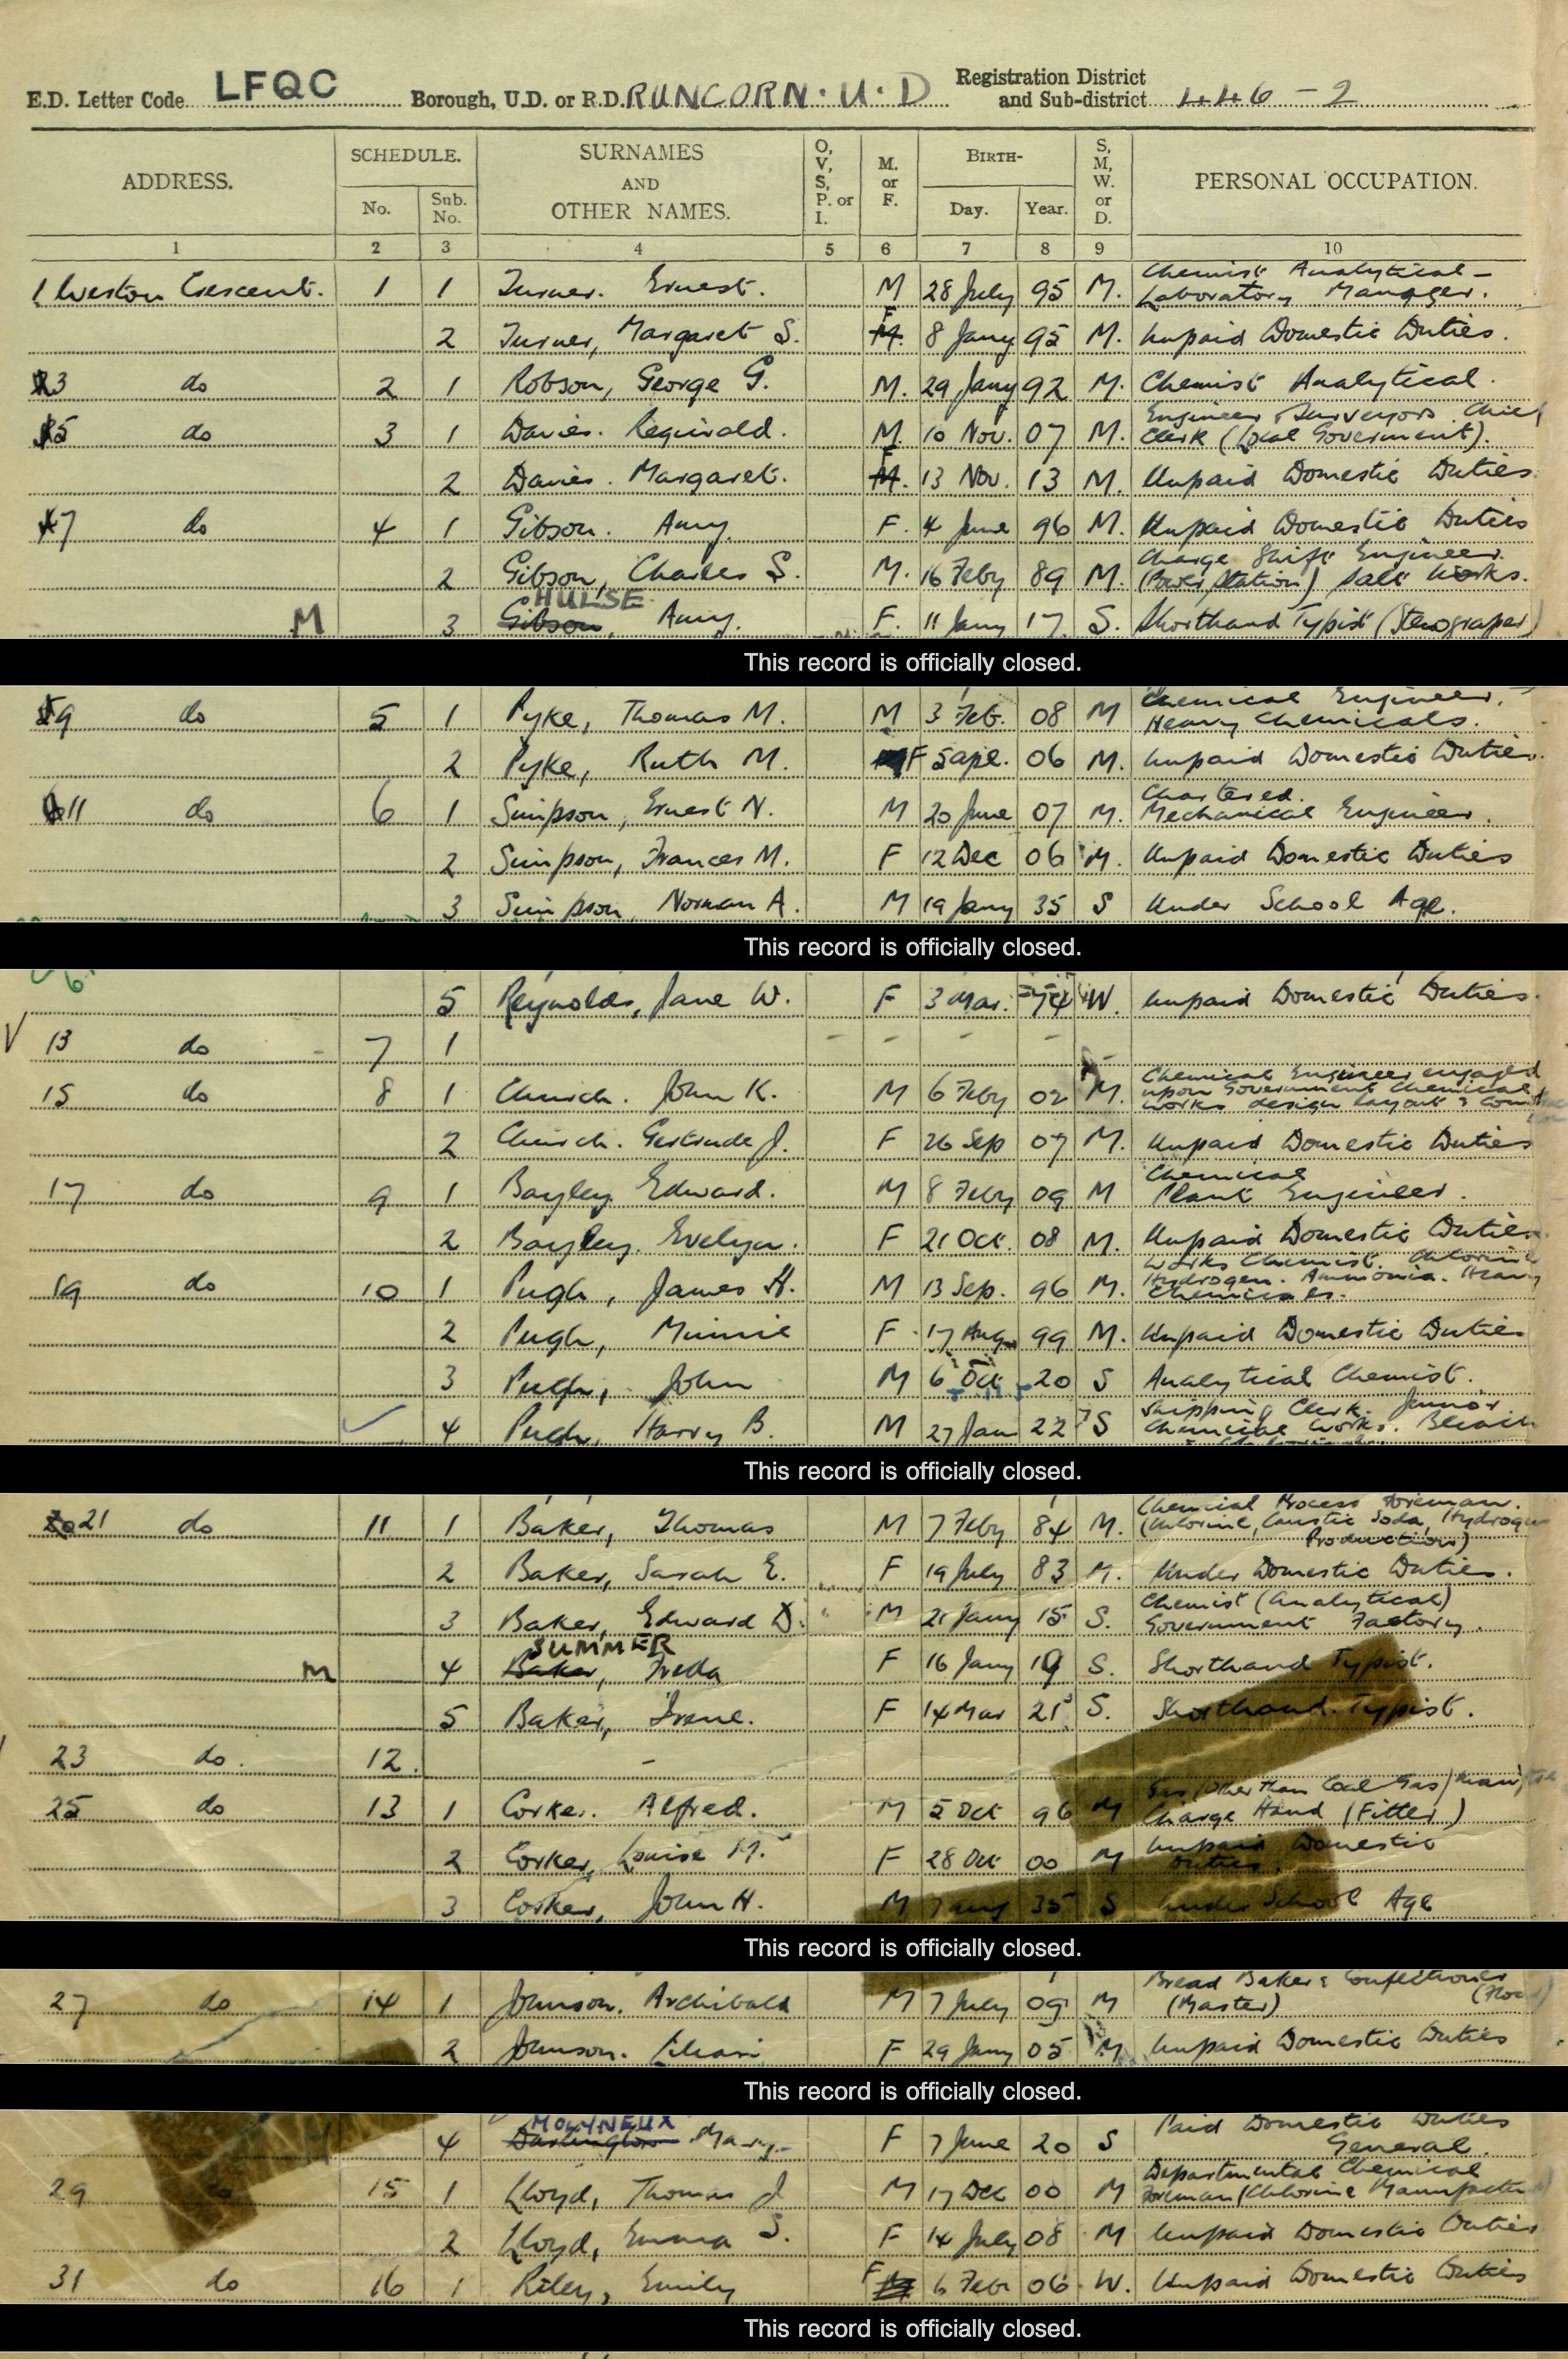 E.D. Letter Code LFQC Borough, U.D. or R.D. RUNCORN. U. D Registration District and Sub-district 446-2
ADDRESS. SCHEDULE. No. Sub. No. SURNAMES AND OTHER NAMES. O, V, S, P. or I. M. or F. BIRTH- Day. Year. S, M, W. or D. PERSONAL OCCUPATION.
1 2 3 4 5 6 7 8 9 10
1 Weston Crescent. 1 1 Turner. Ernest. M 28 July 95 M. Chemist Analytical - Laboratory Manager.
2 Turner, Margaret S. F 8 Jany 95 M. Unpaid Domestic Duties.
3 do 2 1 Robson, George G. M. 29 Jany 92 M. Chemist Analytical.
5 do 3 1 Davies. Reginald. M. 10 Nov. 07 M. Engineer & Surveyors Chief Clerk (Local Government).
2 Davies. Margaret. F 13 Nov. 13 M. Unpaid Domestic Duties
7 do 4 1 Gibson. Amy. F. 4 June 96 M. Unpaid Domestic Duties
2 Gibson, Charles S. M. 16 Feby 89 M. Charge Shift Engineer. (Power Station) Salt Works.
HULSE
M 3 Gibson, Amy. F. 11 Jany 17 S. Shorthand Typist (Stenograper)
This record is officially closed.
9 do 5 1 Pyke, Thomas M. M 3 Feb. 08 M Chemical Engineer. Heavy Chemicals.
2 Pyke, Ruth M. F 5 Apl. 06 M. Unpaid Domestic Duties.
11 do 6 1 Simpson, Ernest N. M 20 June 07 M. Chartered. Mechanical Engineer.
2 Simpson, Frances M. F 12 Dec 06 M. Unpaid Domestic Duties
3 Simpson, Norman A. M 19 Jany 35 S Under School Age.
This record is officially closed.
5 Reynolds, Jane W. F 3 Mar. 74 W. Unpaid Domestic Duties.
13 do - 7 1 - - - -
15 do 8 1 Church. John K. M 6 Feby 02 M. Chemical Engineer engaged upon Government Chemical Works design layout &
2 Church. Gertrude J. F 26 Sep 07 M. Unpaid Domestic Duties
17 do 9 1 Bayley. Edward. M 8 Feby 09 M Chemical Plant Engineer.
2 Bayley. Evelyn. F 21 Oct. 08 M. Unpaid Domestic Duties
19 do 10 1 Pugh, James H. M 13 Sep. 96 M. Works Chemist. Chlorine Hydrogen. Ammonia. Heavy Chemicals.
2 Pugh, Minnie F. 17 Aug. 99 M. Unpaid Domestic Duties
3 Pugh, John M 6 Oct 20 S Analytical Chemist.
4 Pugh, Harry B. M 27 Jan 22 S Shipping Clerk. Junior Chemical Works. Bleach
This record is officially closed.
21 do 11 1 Baker, Thomas M 7 Feby 84 M. Chemical Process Foreman. (Chlorine, Caustic Soda, Hydrogen Production)
2 Baker, Sarah E. F 19 July 83 M. Under Domestic Duties.
3 Baker, Edward D. M 21 Jany 15 S. Chemist (Analytical) Government Factory.
SUMMER
M 4 Baker, Freda F 16 Jany 19 S. Shorthand Typist.
5 Baker, Irene. F 14 Mar 21 S. Shorthand. Typist.
23 do. 12. -
25 do 13 1 Corker. Alfred. M 5 Oct 96 M Gas (Other than Coal Gas) Charge Hand (Fitter)
2 Corker, Louise M. F 28 Oct 00 M Unpaid Domestic Duties.
3 Corker, John H. M 7 Aug 35 S Under School Age
This record is officially closed.
27 do 14 1 Johnson. Archibald M 7 July 09 M Bread Baker & Confectioner (Master)
2 Johnson. Lilian F 29 Jany 05 M Unpaid Domestic Duties
This record is officially closed.
MOLYNEUX
4 Darlington Mary. F 7 June 20 S Paid Domestic Duties General.
29 do 15 1 Lloyd, Thomas J M 17 Dec 00 M Departmental Chemical Foreman (Chlorine
2 Lloyd, Emma S. F 14 July 08 M Unpaid Domestic Duties
31 do 16 1 Riley, Emily F 6 Feb 06 W. Unpaid Domestic Duties
This record is officially closed.